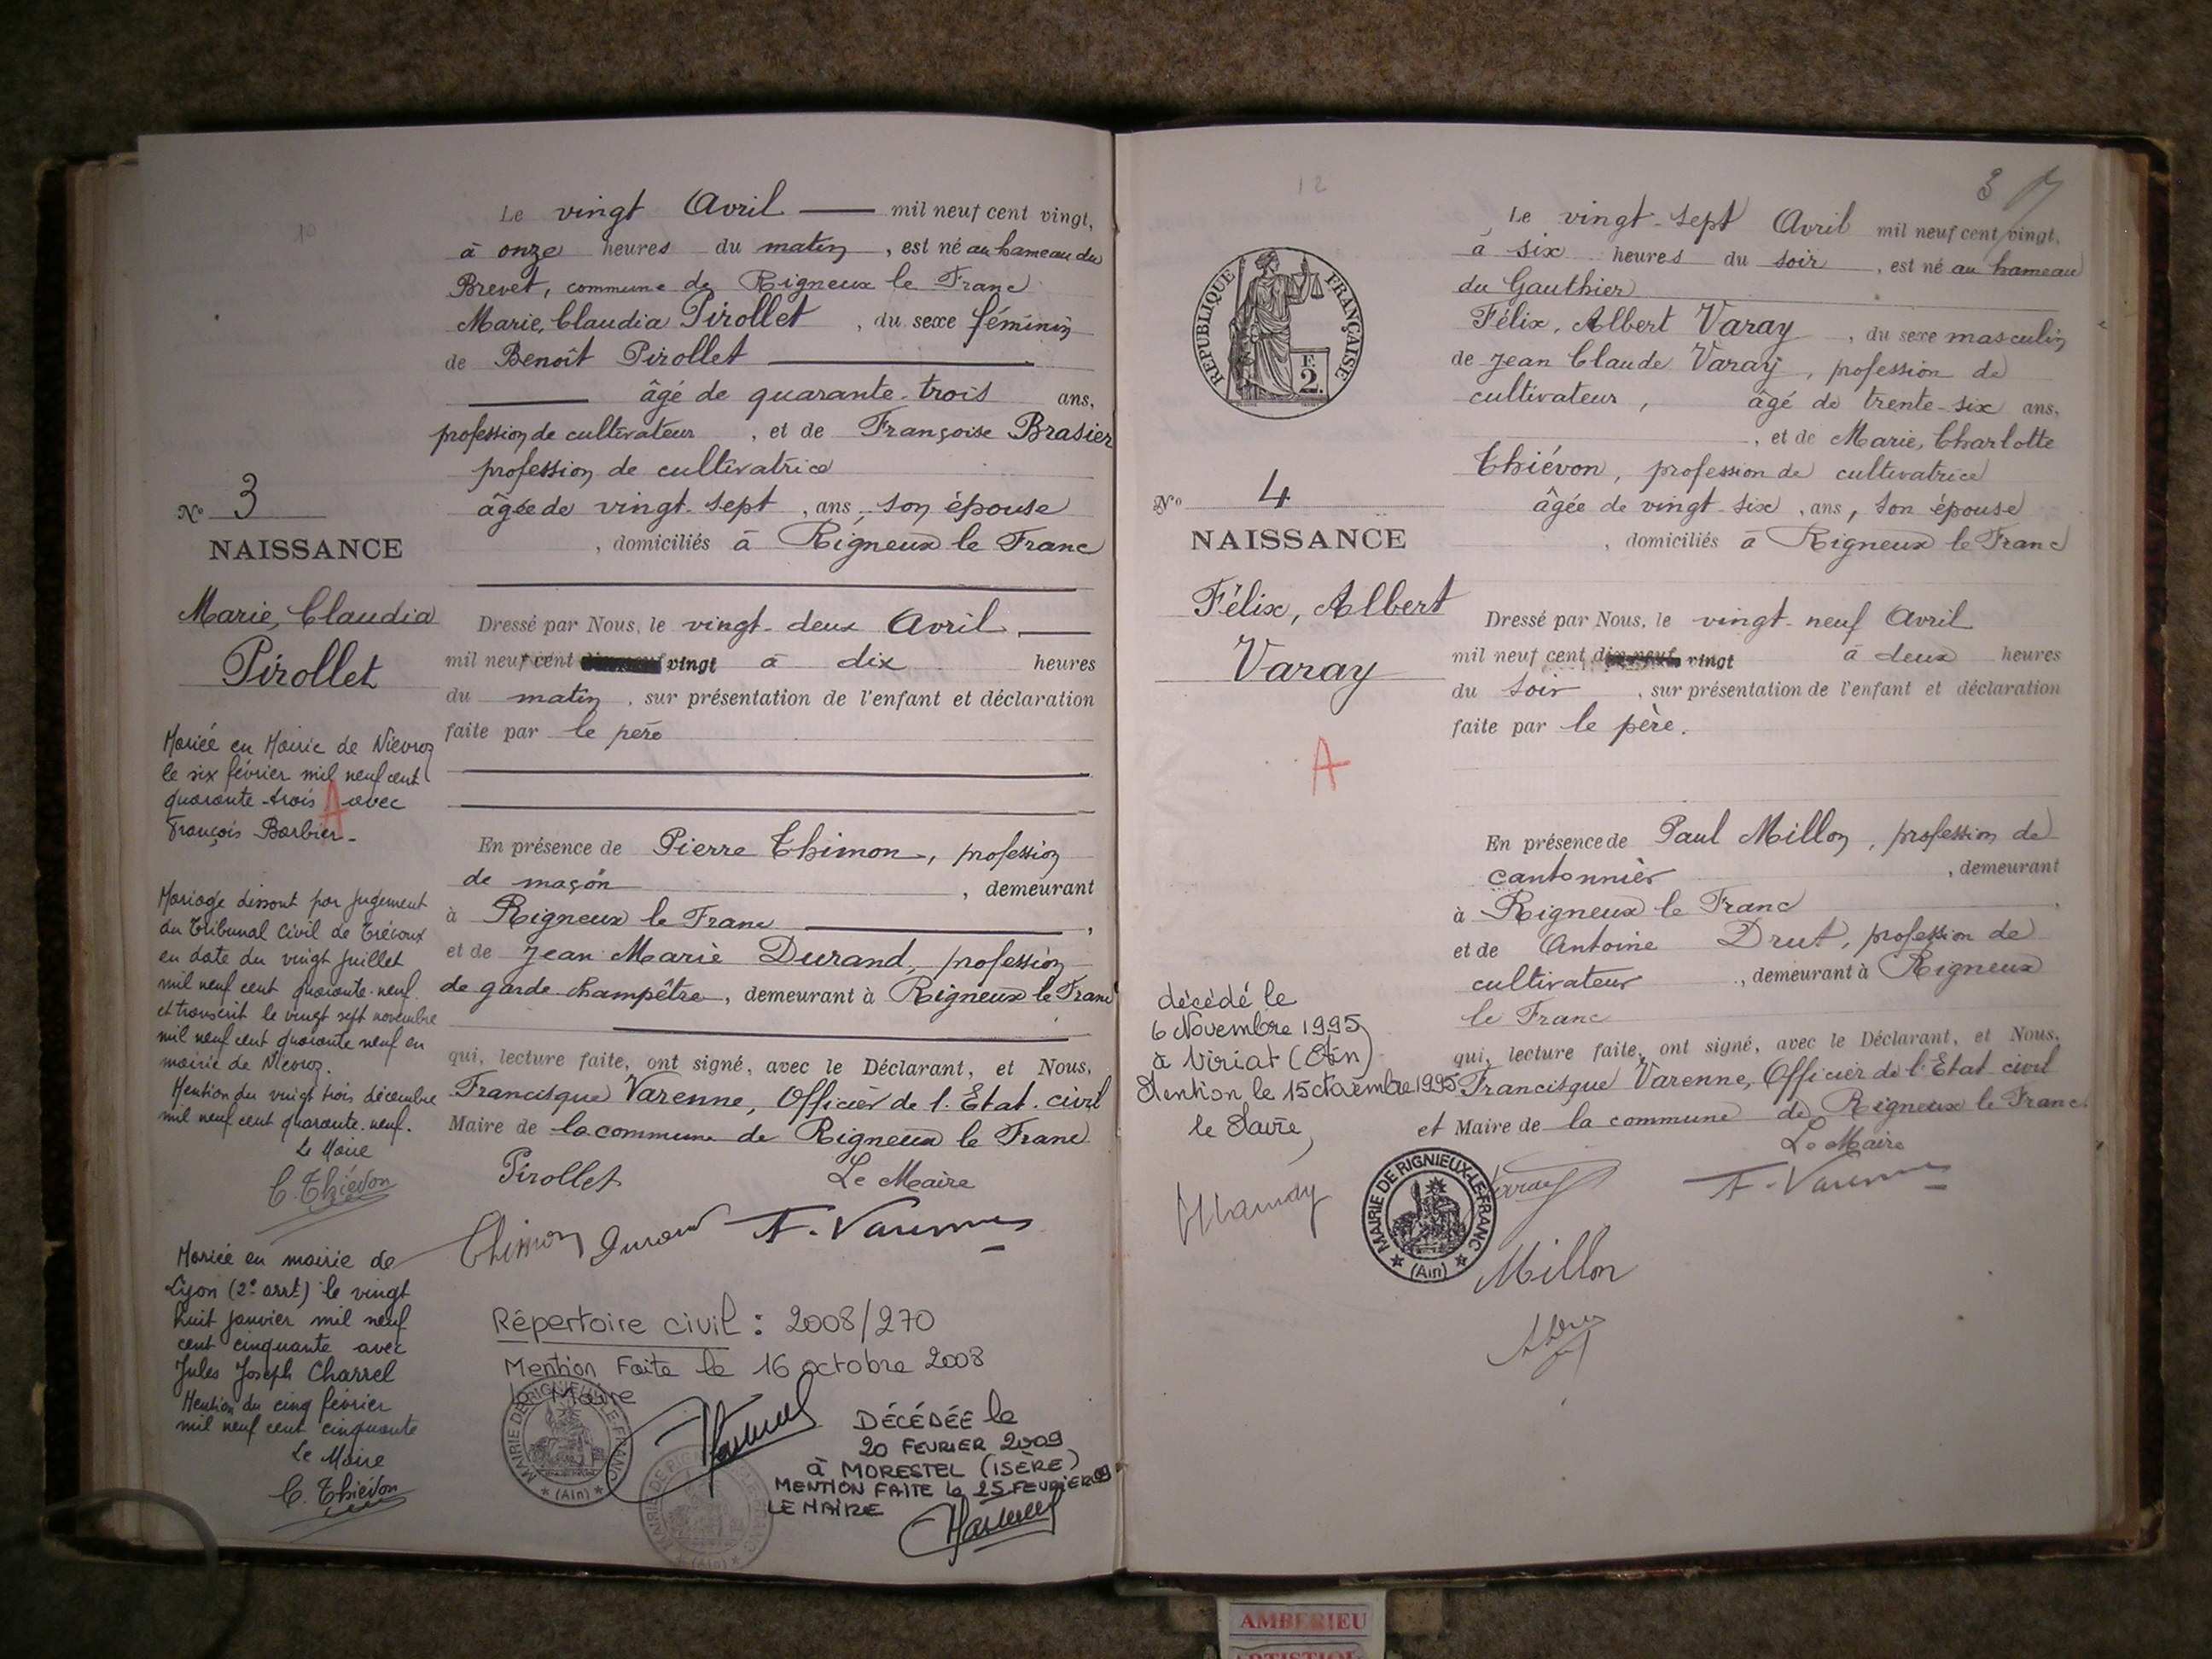 10
Le vingt Avril mil neuf cent vingt,
à onze heures du matin, est né au hameau du
Brevet, commune de Rigneux le Franc
Marie, Claudia Pirollet, du sexe féminin
de Benoît Pirollet
âgé de quarante-trois ans,
profession de cultivateur, et de Françoise Brasier
profession de cultivatrice
âgée de vingt-sept, ans, son épouse
, domiciliés à Rigneux le Franc
N° 3
NAISSANCE
Marie, Claudia
Pirollet
Dressé par Nous, le vingt-deux Avril
mil neuf cent vingt à dix heures
du matin, sur présentation de l'enfant et déclaration
faite par le père
En présence de Pierre Thimon, profession
de maçon, demeurant
à Rigneux le Franc,
et de Jean Marie Durand, profession
de garde-champêtre, demeurant à Rigneux le Franc
qui, lecture faite, ont signé, avec le Déclarant, et Nous,
Francisque Varenne, Officier de l'Etat-civil
Maire de la commune de Rigneux le Franc
Pirollet Le Maire
Thimon Durand F. Varenne
Mariée en Mairie de Nievroz
le six février mil neuf cent
quarante-trois A avec
François Barbier-
Mariage dissout par Jugement
du Tribunal Civil de Trévoux
en date du vingt Juillet
mil neuf cent quarante-neuf
et transcrit le vingt sept novembre
mil neuf cent quarante neuf en
mairie de Nievroz.
Mention du vingt trois décembre
mil neuf cent quarante-neuf.
Le Maire
C. Thiévon
Mariée en mairie de
Lyon (2e arrt) le vingt
huit Janvier mil neuf
cent cinquante avec
Jules Joseph Charrel
Mention du cinq février
mil neuf cent cinquante
Le Maire
C. Thiévon
Répertoire civil : 2008/270
Mention Faite le 16 octobre 2008
le Maire
MAIRIE DE RIGNIEUX-LE-FRANC
(Ain)
DÉCÉDÉE le
20 FEVRIER 2009
à MORESTEL (ISÈRE)
MENTION FAITE le 25 FEVRIER 09
LE MAIRE
12
3
RÉPUBLIQUE FRANÇAISE
F.
2.
Le vingt-sept Avril mil neuf cent vingt,
à six heures du soir, est né au hameau
du Gauthier
Félix, Albert Varay, du sexe masculin
de Jean Claude Varay, profession de
cultivateur, âgé de trente-six ans,
, et de Marie, Charlotte
Thiévon, profession de cultivatrice
âgée de vingt-six, ans, son épouse
, domiciliés à Rigneux le Franc
N° 4
NAISSANCE
Félix, Albert
Varay
A
Dressé par Nous, le vingt-neuf Avril
mil neuf cent dix-neuf vingt à deux heures
du soir, sur présentation de l'enfant et déclaration
faite par le père.
En présence de Paul Millon, profession de
cantonnier, demeurant
à Rigneux le Franc,
et de Antoine Drut, profession de
cultivateur, demeurant à Rigneux
le Franc
qui, lecture faite, ont signé, avec le Déclarant, et Nous,
Francisque Varenne, Officier de l'Etat-civil
et Maire de la commune de Rigneux le Franc
Le Maire
Varay F. Varenne
Millon
décédé le
6 Novembre 1995
à Viriat (Ain)
Mention le 1995
le Maire,
MAIRIE DE RIGNIEUX-LE-FRANC
(Ain)
AMBERIEU